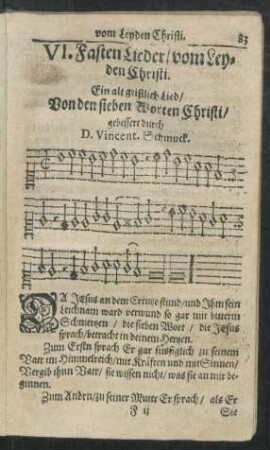 vom Leyden Christi. 83
VI. Fasten Lieder/ vom Ley-
den Christi.
Ein alt geistlich Lied/
Von den sieben Worten Christi/
gebessert durch
D. Vincent. Schmuck.
DA JEsus an dem Creutze stund/ und Ihm sein
Leichnam ward verwund so gar mit bitterm
Schmertzen / die sieben Wort / die JEsus
sprach/ betracht in deinem Hertzen.
Zum Ersten sprach Er gar süssiglich zu seinem
Vatr im Himmelreich/ mit Kräften und mit Sinnen/
Vergib ihnn Vatr/ sie wissen nicht/ was sie an mir be-
ginnen.
Zum Andrn/ zu seiner Muttr Er sprach/ als Er
F ij Sie